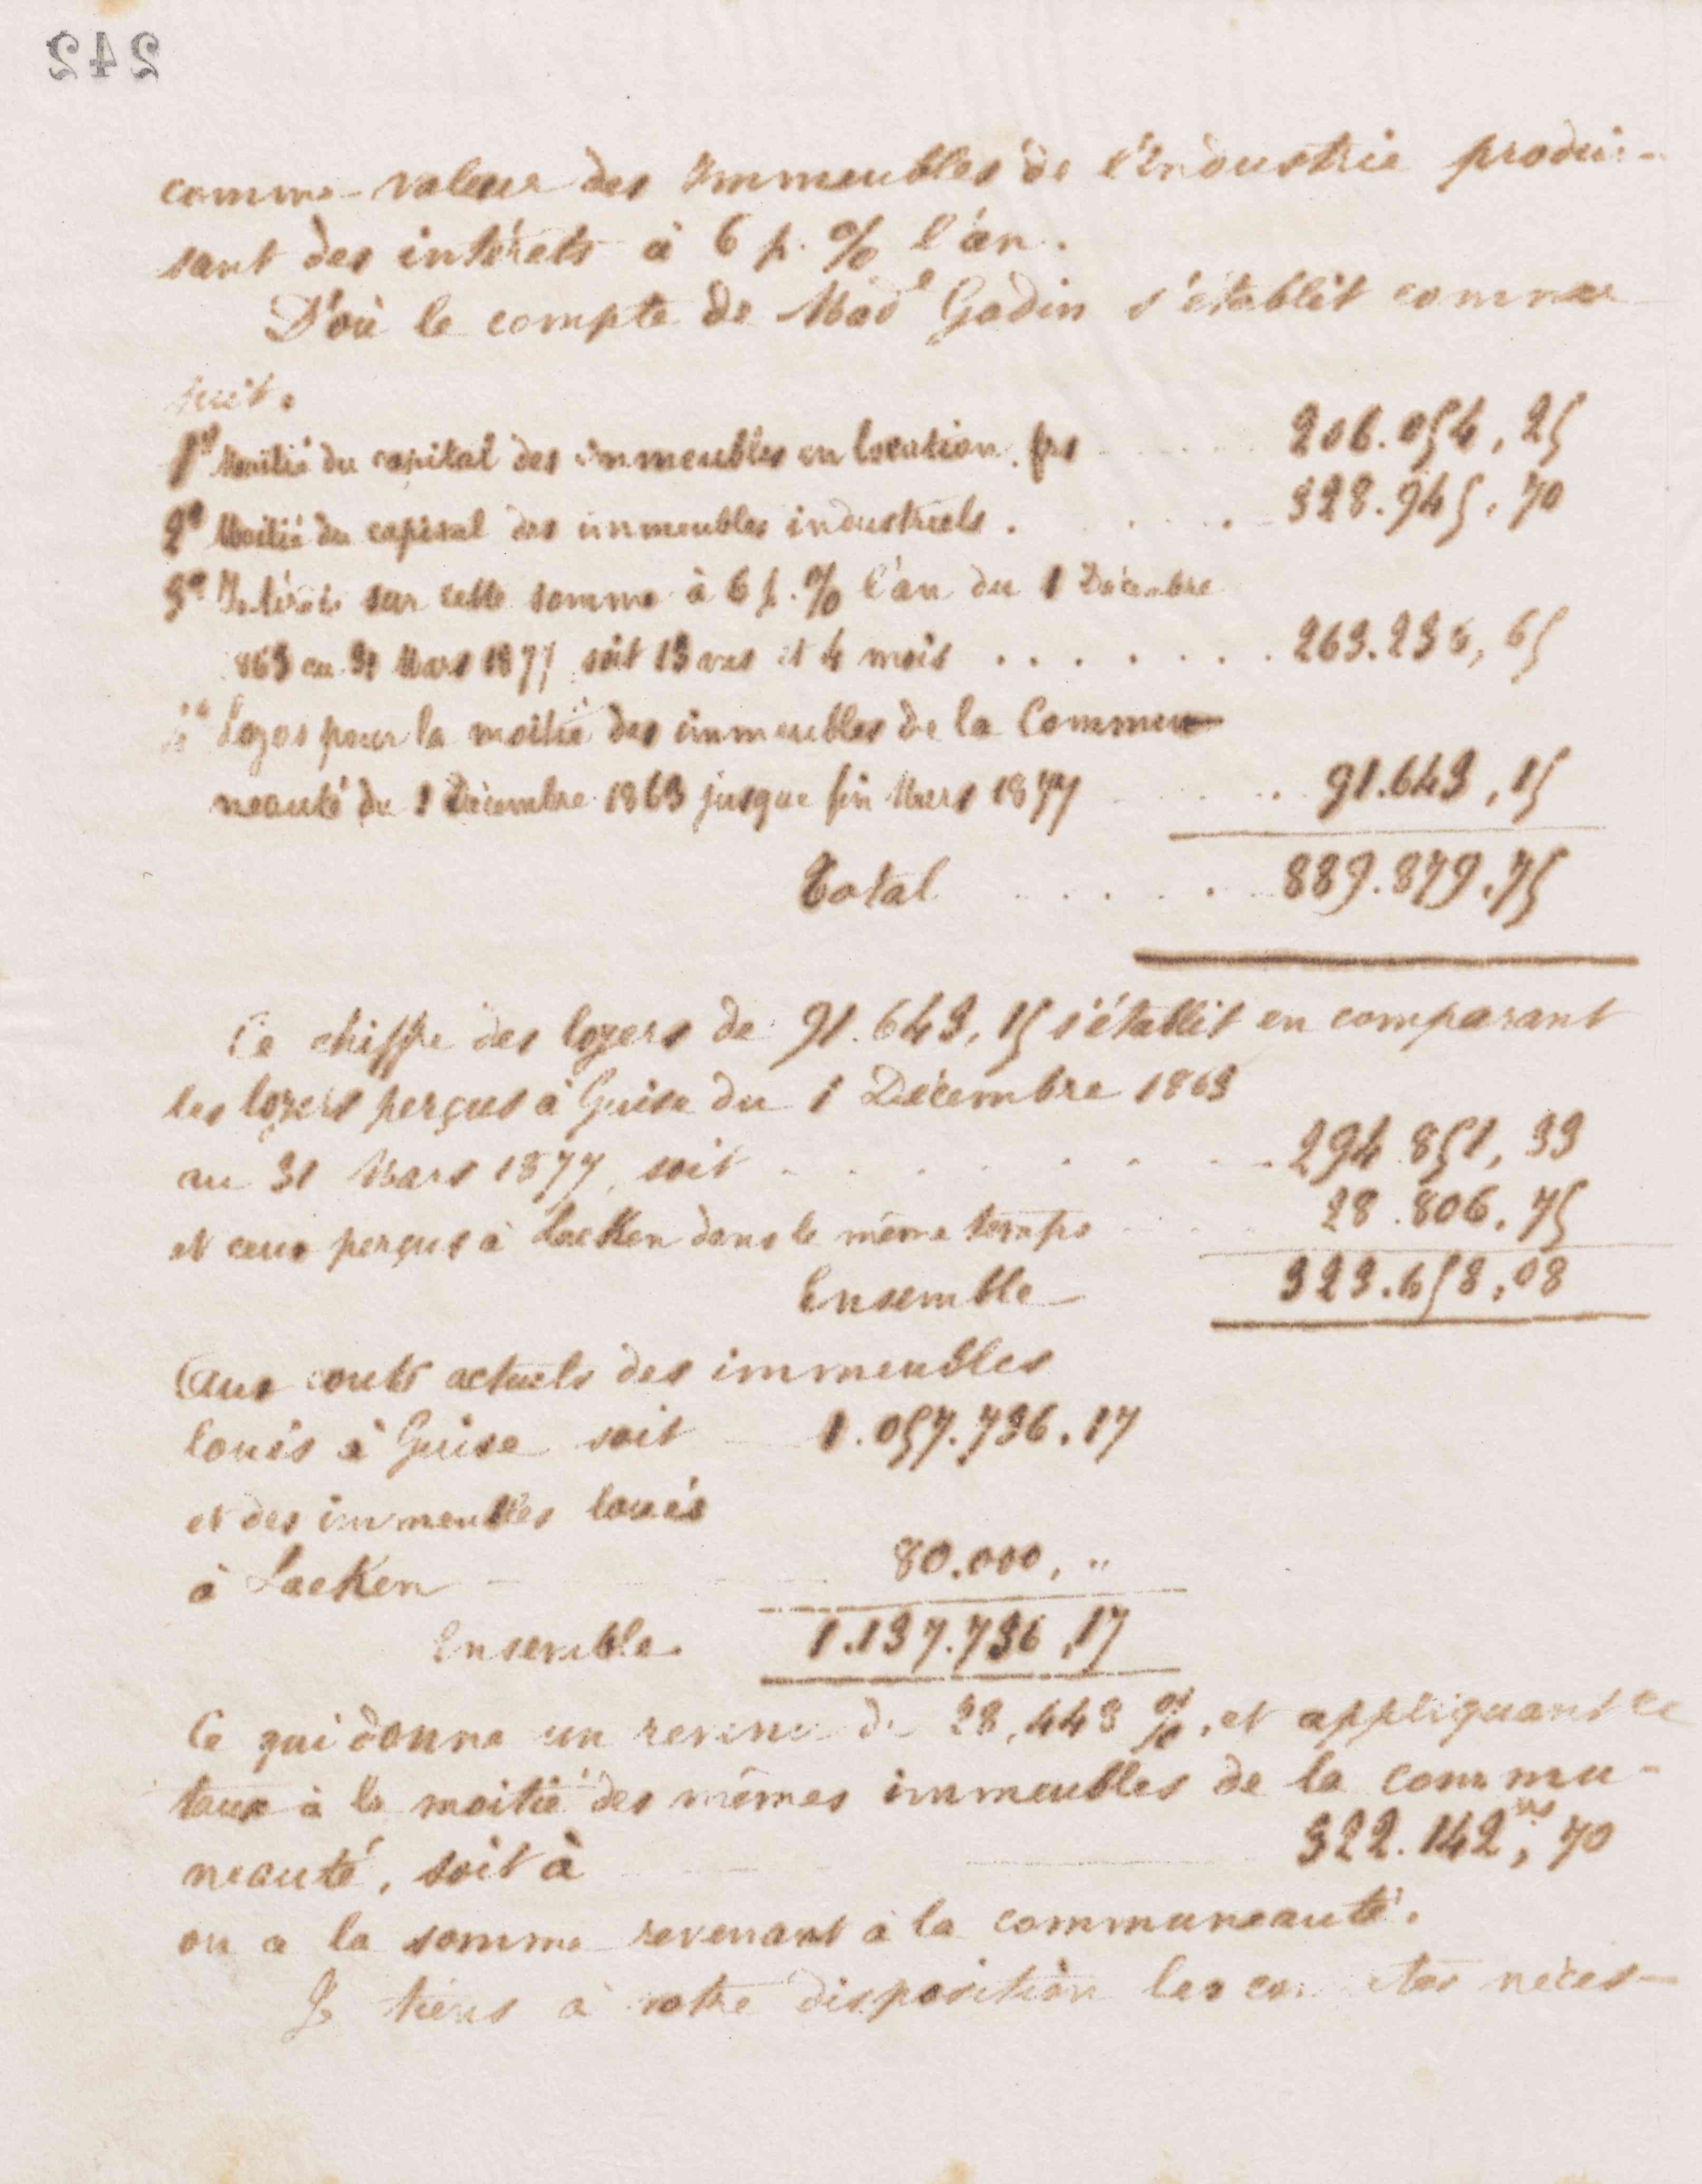 242
comme valeur des Immeubles de l'Industrie produi-
sant des intérêts à 6 p. % l'an.
D'où le compte de Mad^e Godin s'établit comme
suit.
1° Moitié du capital des immeubles en location. frs 206.054,25
2° Moitié du capital des immeubles industriels . 328.945,70
3° Intérêts sur cette somme à 6 p. % l'an du 1 Décembre
1863 au 31 Mars 1877 soit 13 ans et 4 mois 263.236,65
4° Loyers pour la moitié des immeubles de la Commu-
neauté du 1 Décembre 1863 jusque fin Mars 1877 91.643,15
Total 889.879.75
Ce chiffre des loyers de 91.643,15 s'établit en comparant
les loyers perçus à Guise du 1 Décembre 1863
au 31 Mars 1877, soit 294.851,33
et ceux perçus à Laeken dans le même temps 28.806,75
Ensemble 323.658,08
Aux couts actuels des immeubles
loués à Guise soit 1.057.736.17
et des immeubles loués
à Laeken 80.000, "
Ensemble 1.137.736,17
Ce qui donne un revenu de 28,443 %, et appliquant ce
taux à la moitié des mêmes immeubles de la commu-
neauté, soit à 322.142,70
on a la somme revenant à la communeauté.
Je tiens à votre disposition les néces-